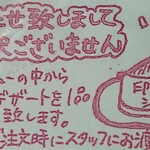 せ致しまして
ございません
ューの中から
デザートを1品
致します。
注文時にスタッフにお
印